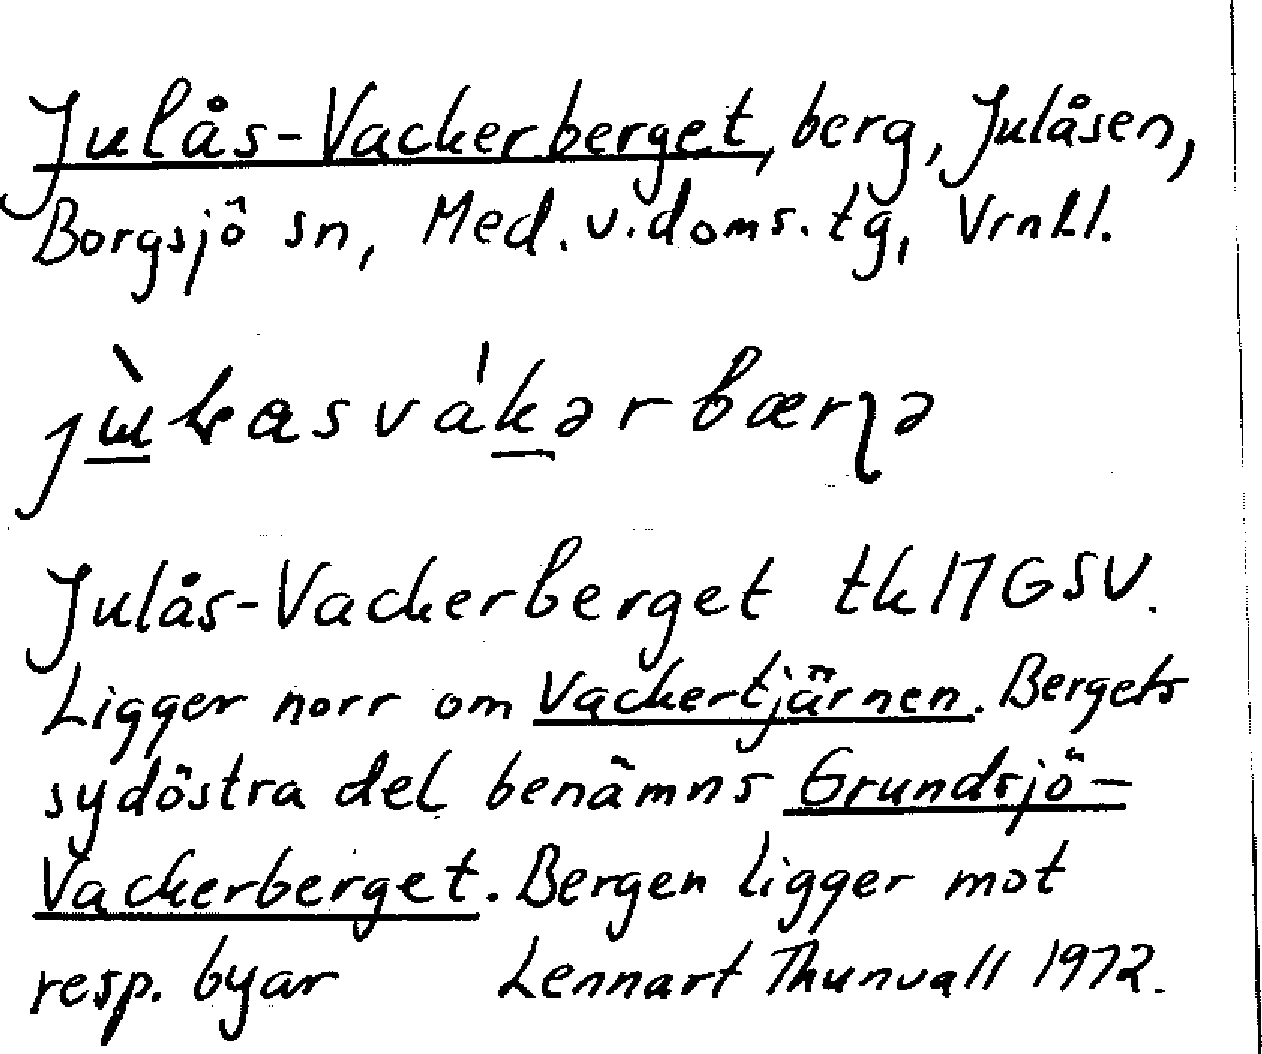 Julås-Vackerberget, berg, Julåsen,
Borgsjö sn, Med. v. doms. tg, Vrnl.
Julås-Vackerberget tk 17 G SV.
Ligger norr om Vackertjärnen. Bergets
sydöstra del benämns Grundsjö-
Vackerberget. Bergen ligger mot
resp. byar Lennart Thunvall 1972.